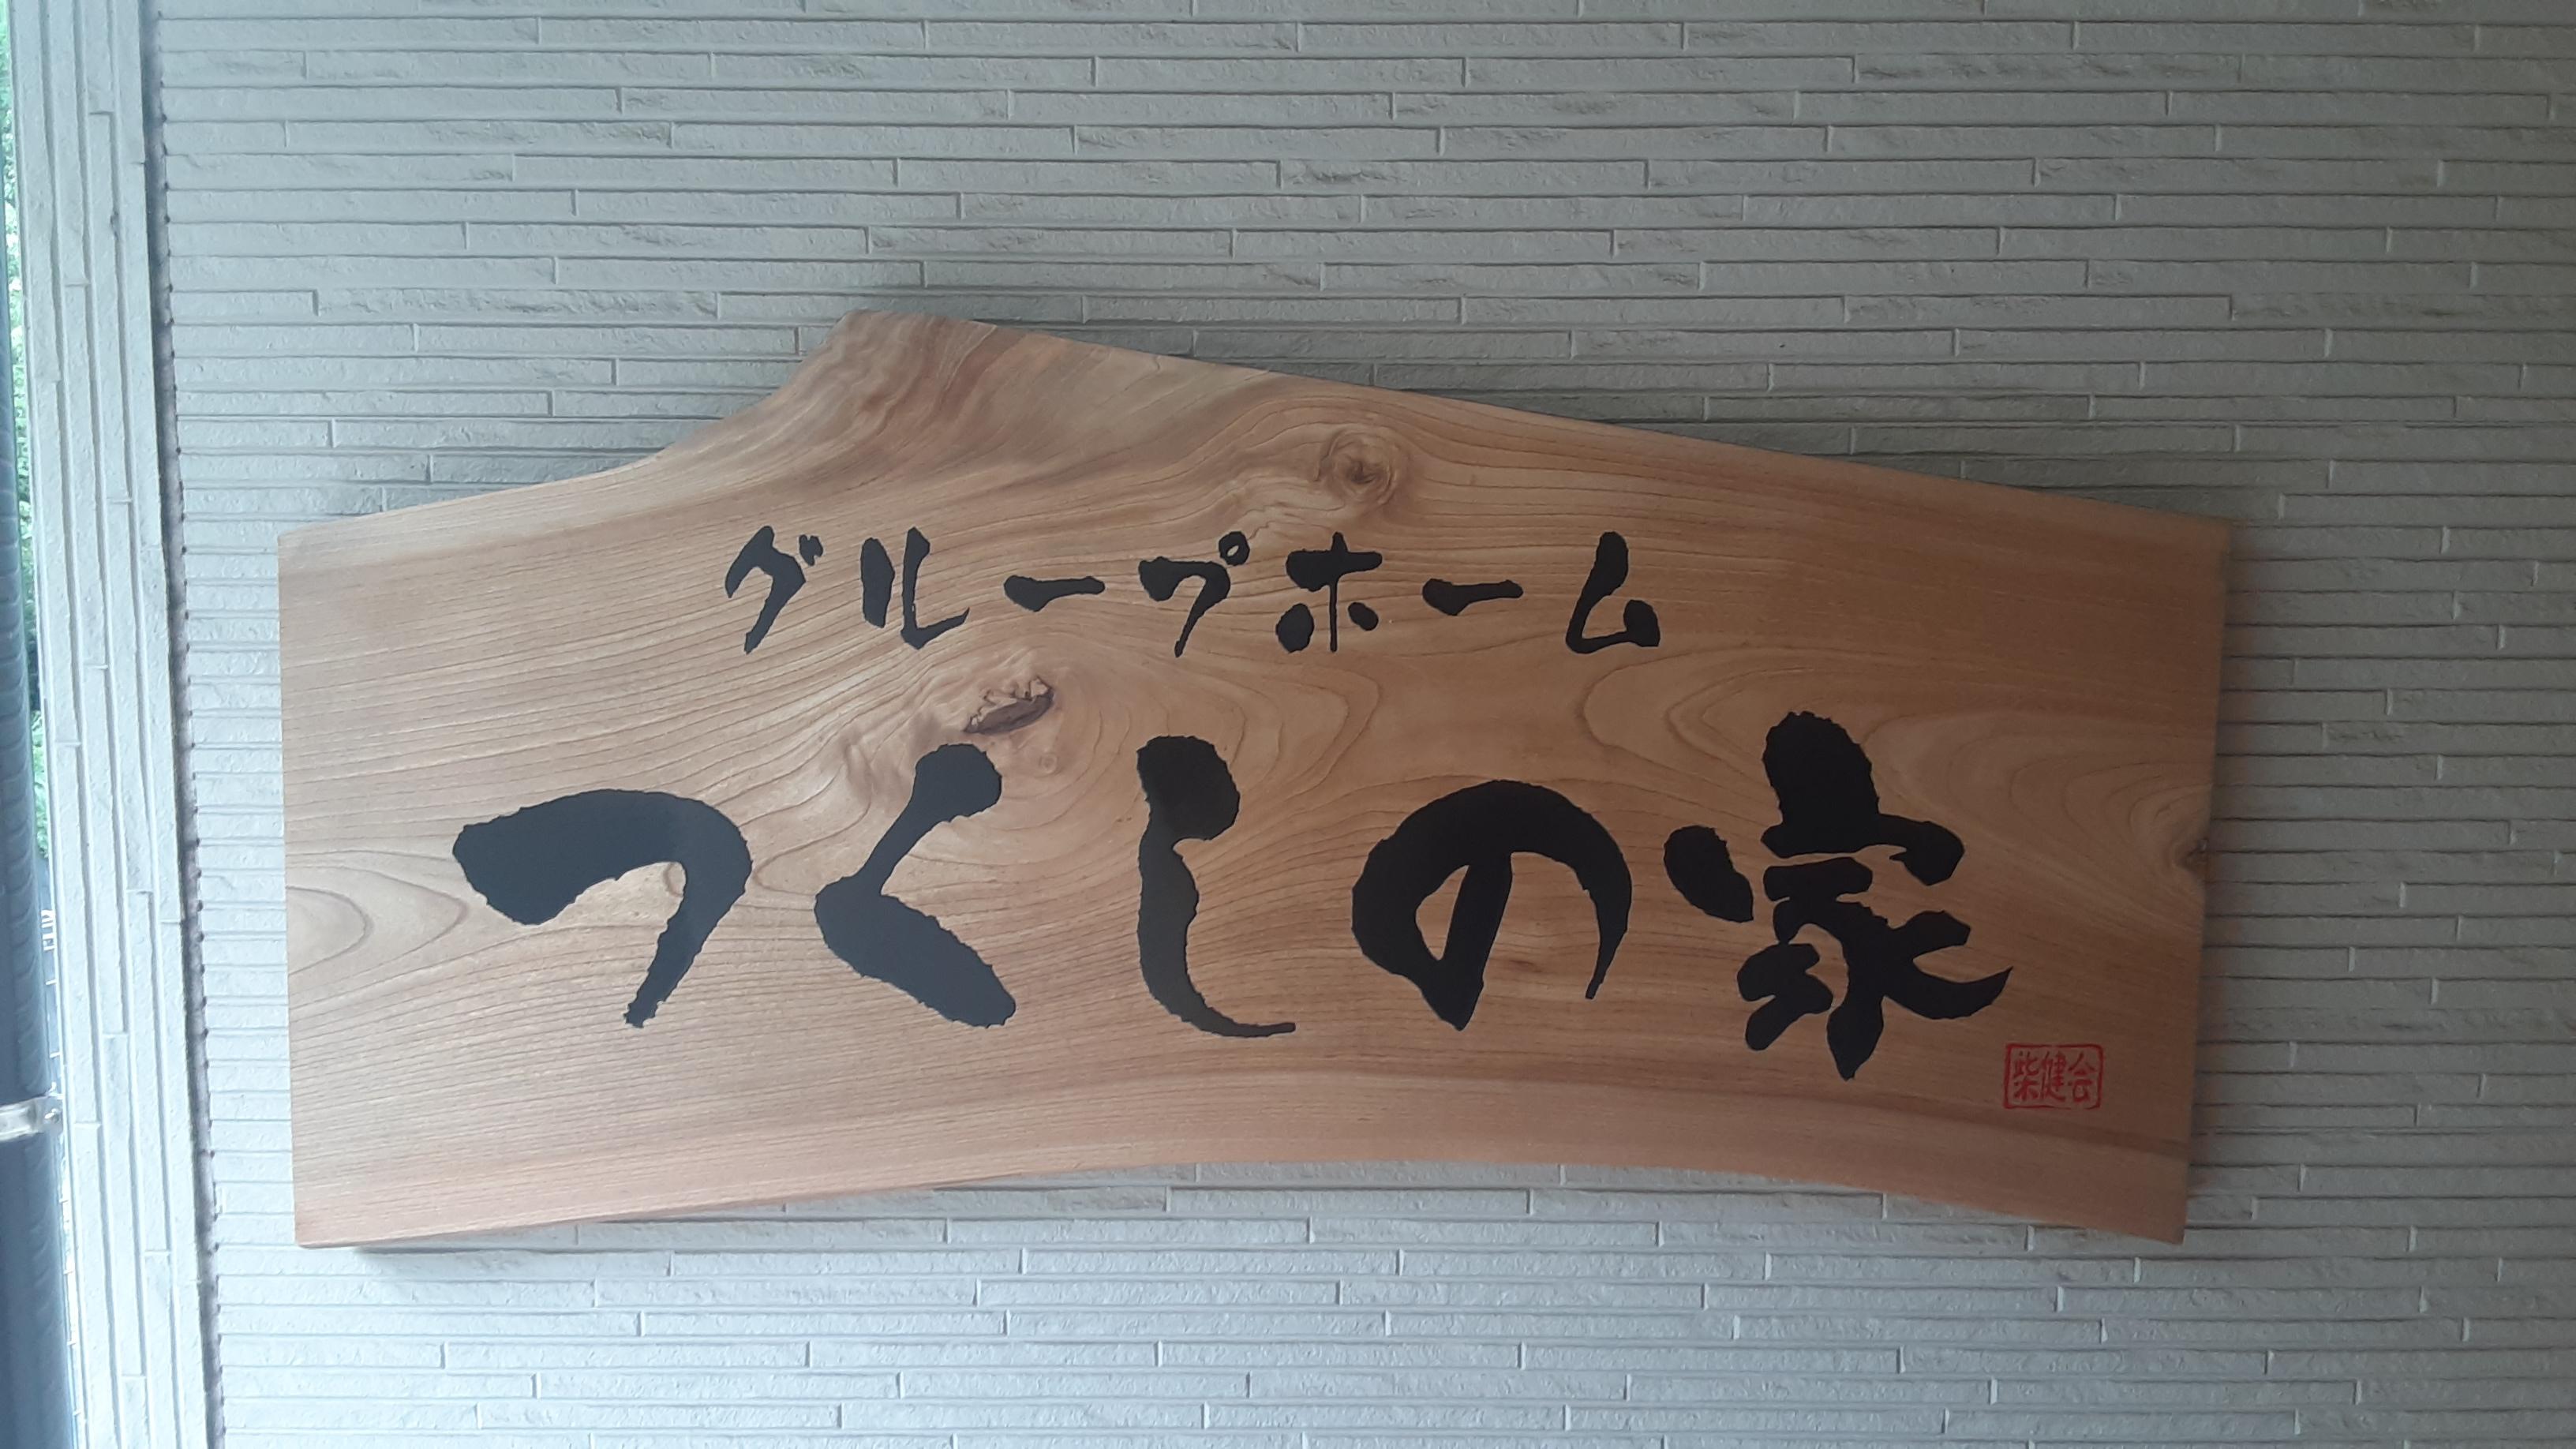 グループホーム
つくしの家
柴健会